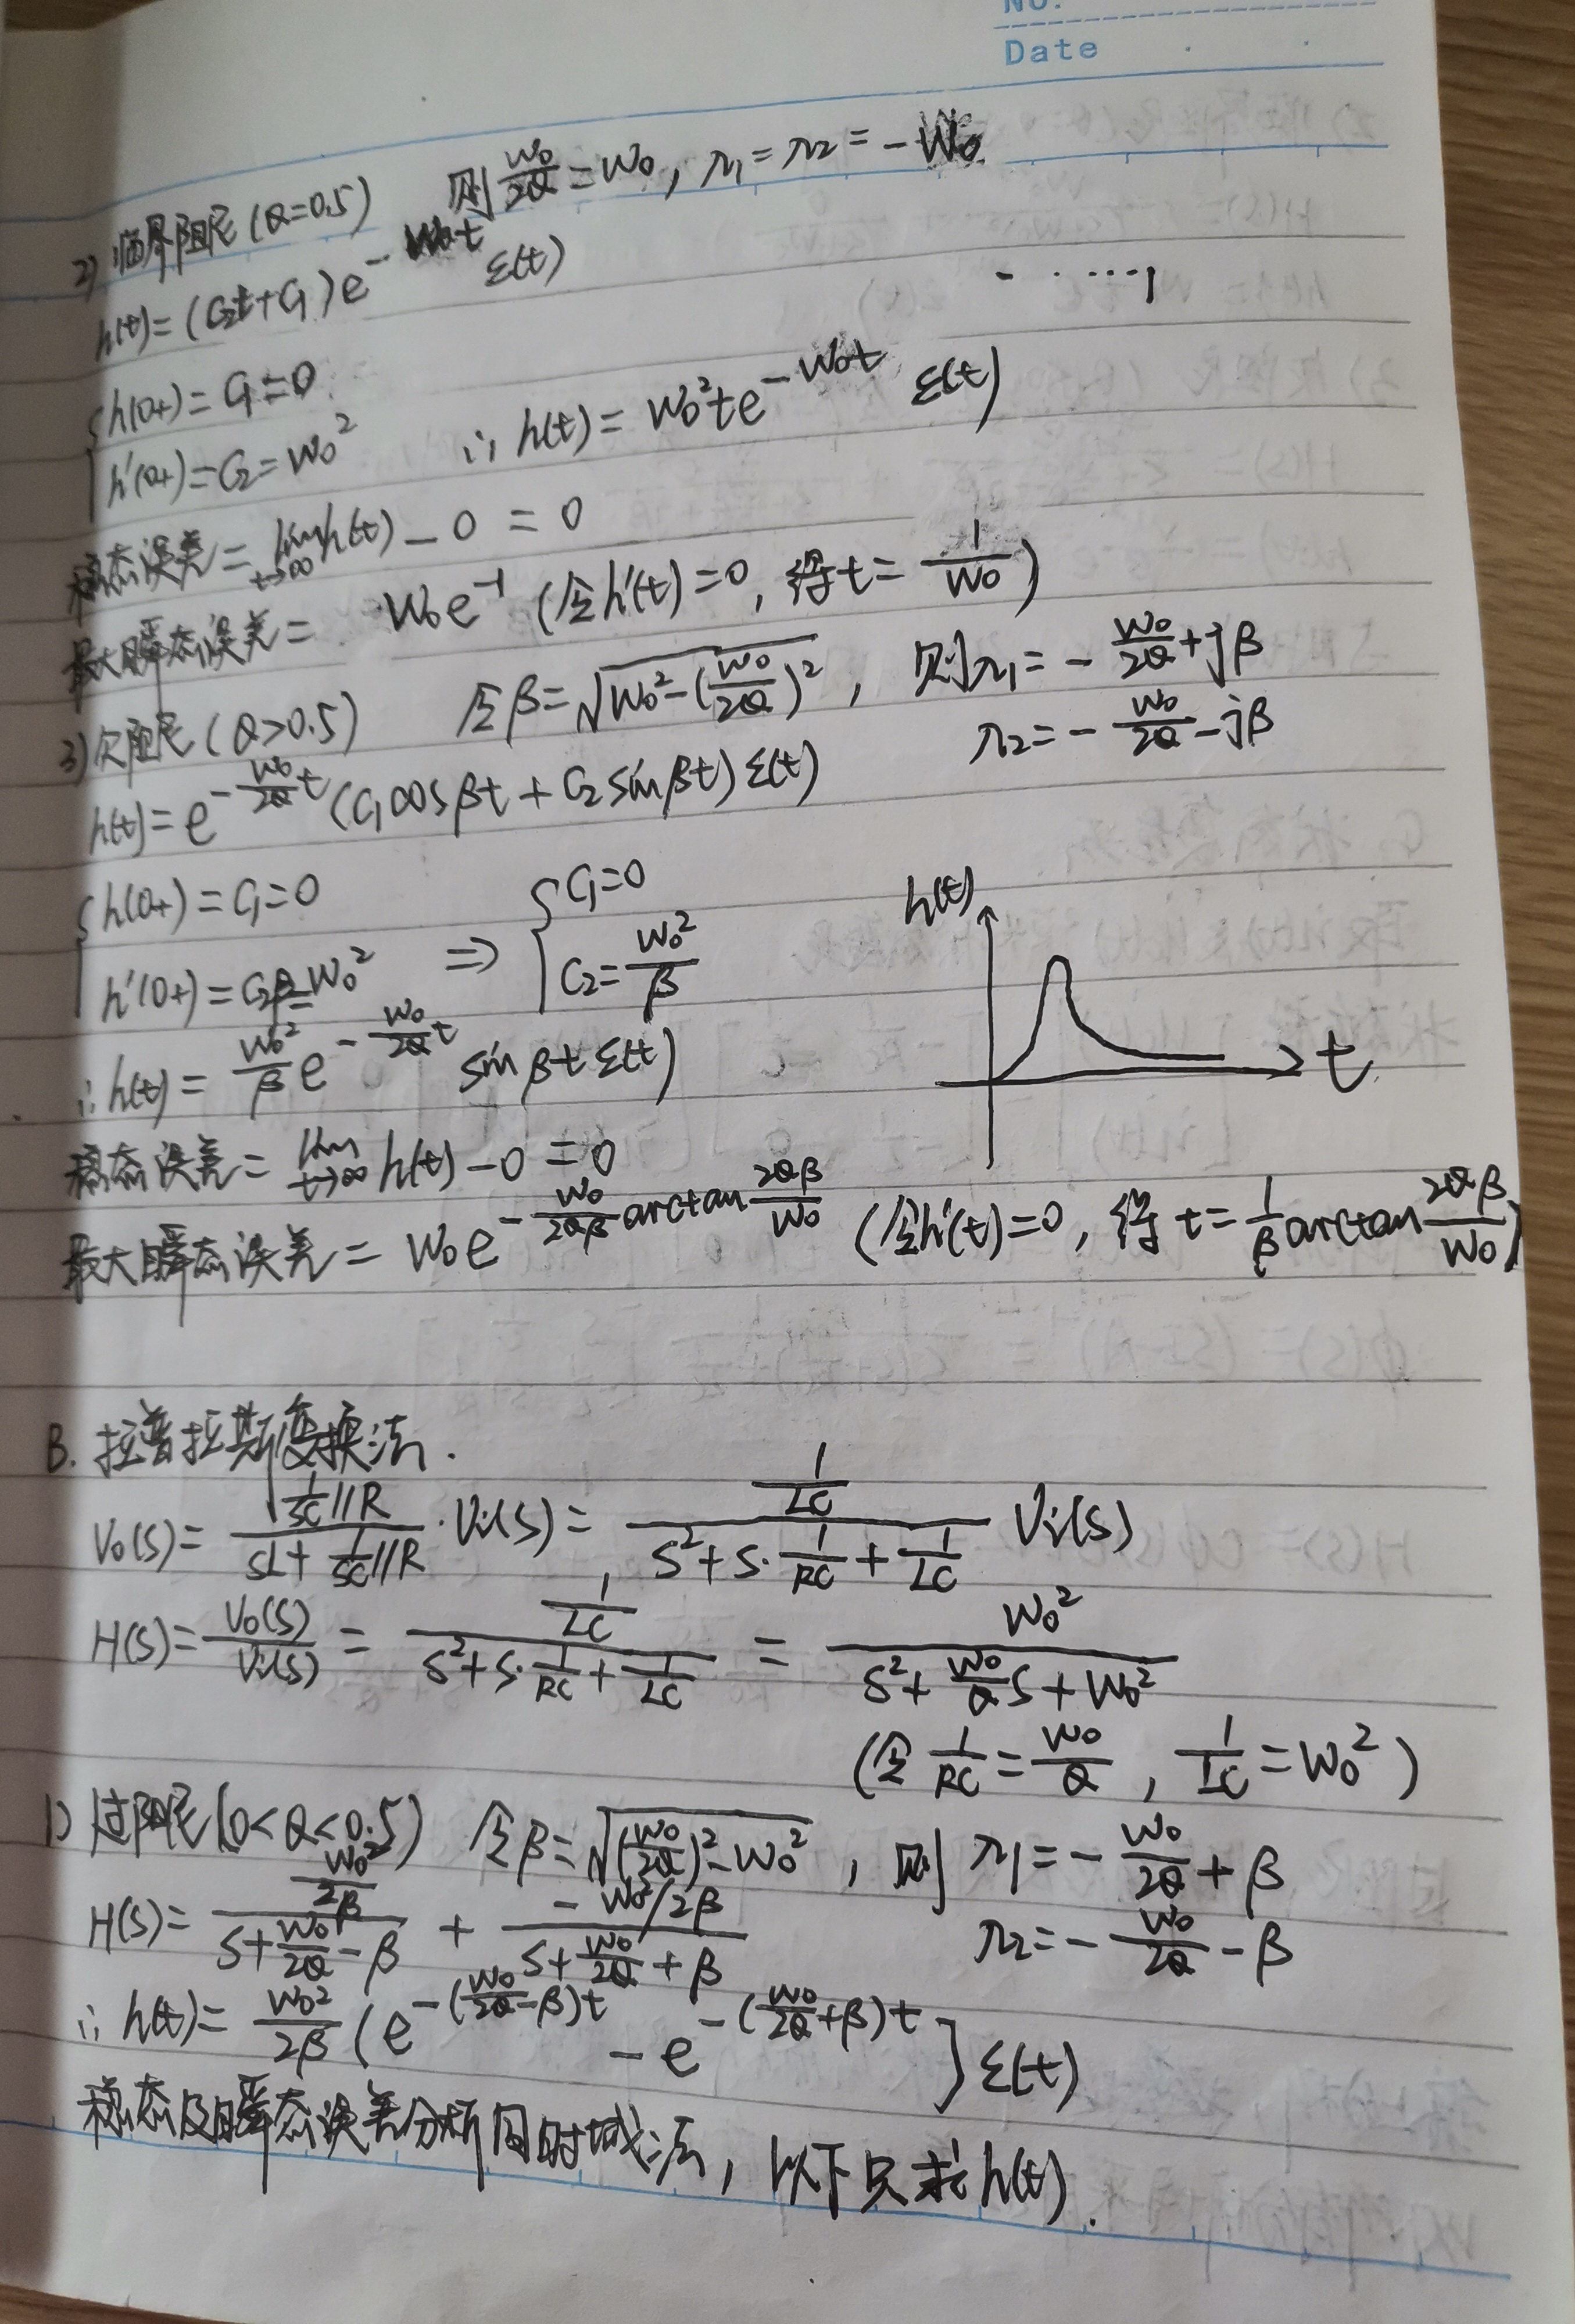 NO.
Date
2) 临界阻尼(Q=0.5) 则 W₀/2Q = W₀, λ₁=λ₂=-W₀
h(t)=(C₂t+C₁)e^(-W₀t) ε(t)
{h(0₊)=C₁=0
h'(0₊)=C₂=W₀² ∴ h(t)=W₀²te^(-W₀t) ε(t)
稳态误差=lim(t→∞) h(t)-0=0
最大瞬态误差= W₀e⁻¹ (令h'(t)=0, 得t=1/W₀)
3) 欠阻尼(Q>0.5) 令β=√(W₀²-(W₀/2Q)²), 则λ₁=-W₀/2Q+jβ
λ₂=-W₀/2Q-jβ
h(t)=e^(-(W₀/2Q)t)(C₁cosβt+C₂sinβt)ε(t)
{h(0₊)=C₁=0 {C₁=0
h'(0₊)=C₂β=W₀² ⇒ C₂=W₀²/β
∴ h(t)=(W₀²/β)e^(-(W₀/2Q)t) sinβt ε(t)
h(t)
t
稳态误差=lim(t→∞) h(t)-0=0
最大瞬态误差=W₀e^(-(W₀/2Qβ)arctan(2Qβ/W₀)) (令h'(t)=0, 得t=(1/β)arctan(2Qβ/W₀))
B. 拉普拉斯变换法.
V₀(S)=(1/SC//R)/(SL+1/SC//R)·Vi(S)=(1/LC)/(S²+S·1/RC+1/LC) Vi(S)
H(S)=V₀(S)/Vi(S)=(1/LC)/(S²+S·1/RC+1/LC)=W₀²/(S²+(W₀/Q)S+W₀²)
(令 1/RC=W₀/Q, 1/LC=W₀²)
1) 过阻尼(0<Q<0.5) 令β=√((W₀/2Q)²-W₀²), 则 λ₁=-W₀/2Q+β
λ₂=-W₀/2Q-β
H(S)=(W₀²/2β)/(S+W₀/2Q-β)+(-W₀²/2β)/(S+W₀/2Q+β)
∴ h(t)=(W₀²/2β)(e^(-(W₀/2Q-β)t)-e^(-(W₀/2Q+β)t)]ε(t)
稳态及瞬态误差分析同时域法, 以下只求h(t).